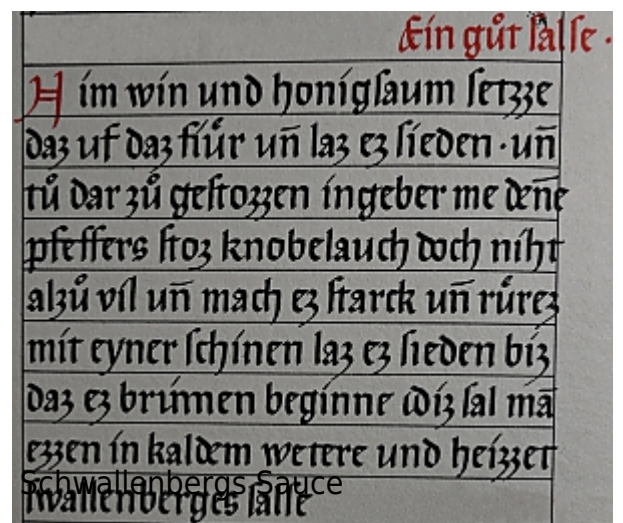 Ein gůt salse ·
Nim win und honigsaum setzze
daz uf daz fiůr uñ laz ez sieden · uñ
tů dar zů gestozzen ingeber me denē
pfeffers stoz knobelauch doch niht
alzů vil uñ mach ez starck uñ růrez
mit eyner schinen laz ez sieden biz
daz ez brinnen beginne diz sal mā
ezzen in kaldem wetere und heizzet
swallenberges salse
Schwallenbergs Sauce